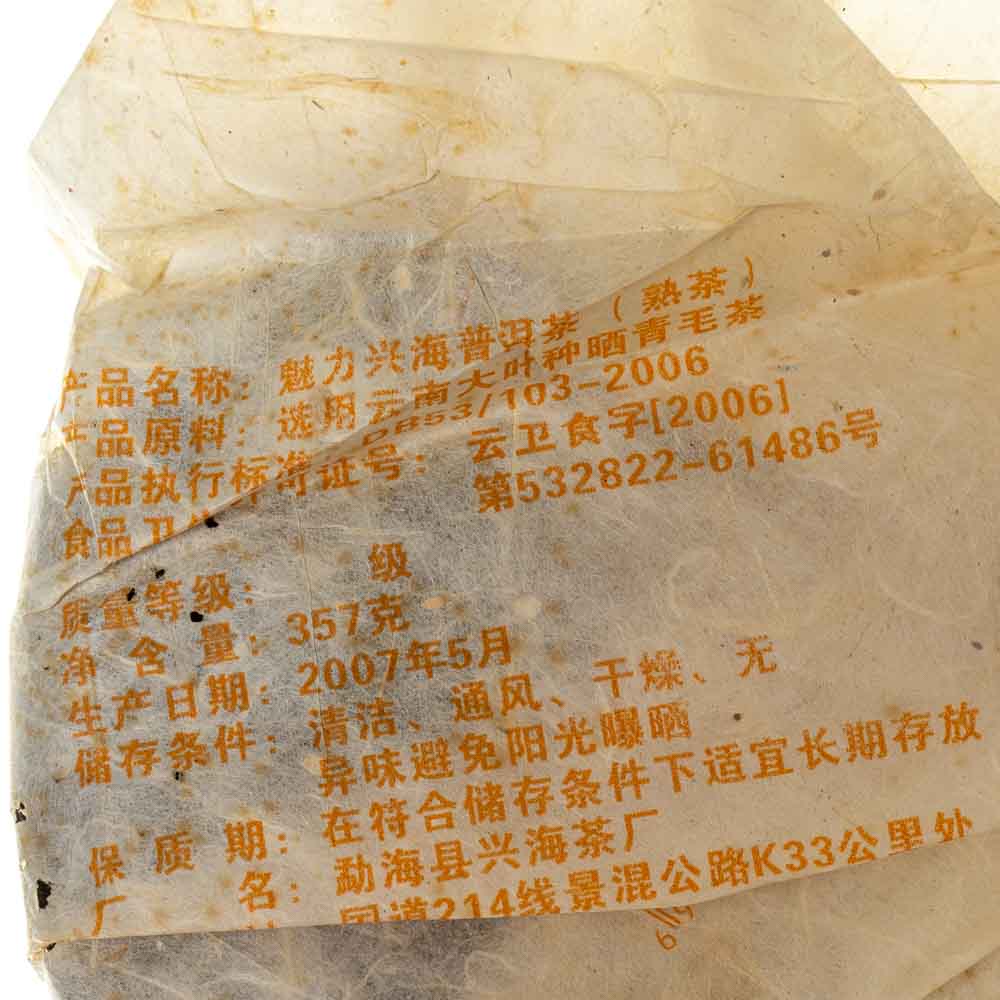 产品名称：魅力兴海普洱茶（熟茶）
产品原料：选用云南大叶种晒青毛茶
产品执行标准证号：DB53/103-2006
食品卫 云卫食字[2006]
第532822-61486号
质量等级： 级
净含量：357克
生产日期：2007年5月
储存条件：清洁、通风、干燥、无
异味避免阳光曝晒
保质期：在符合储存条件下适宜长期存放
厂名：勐海县兴海茶厂
国道214线景混公路K33公里处